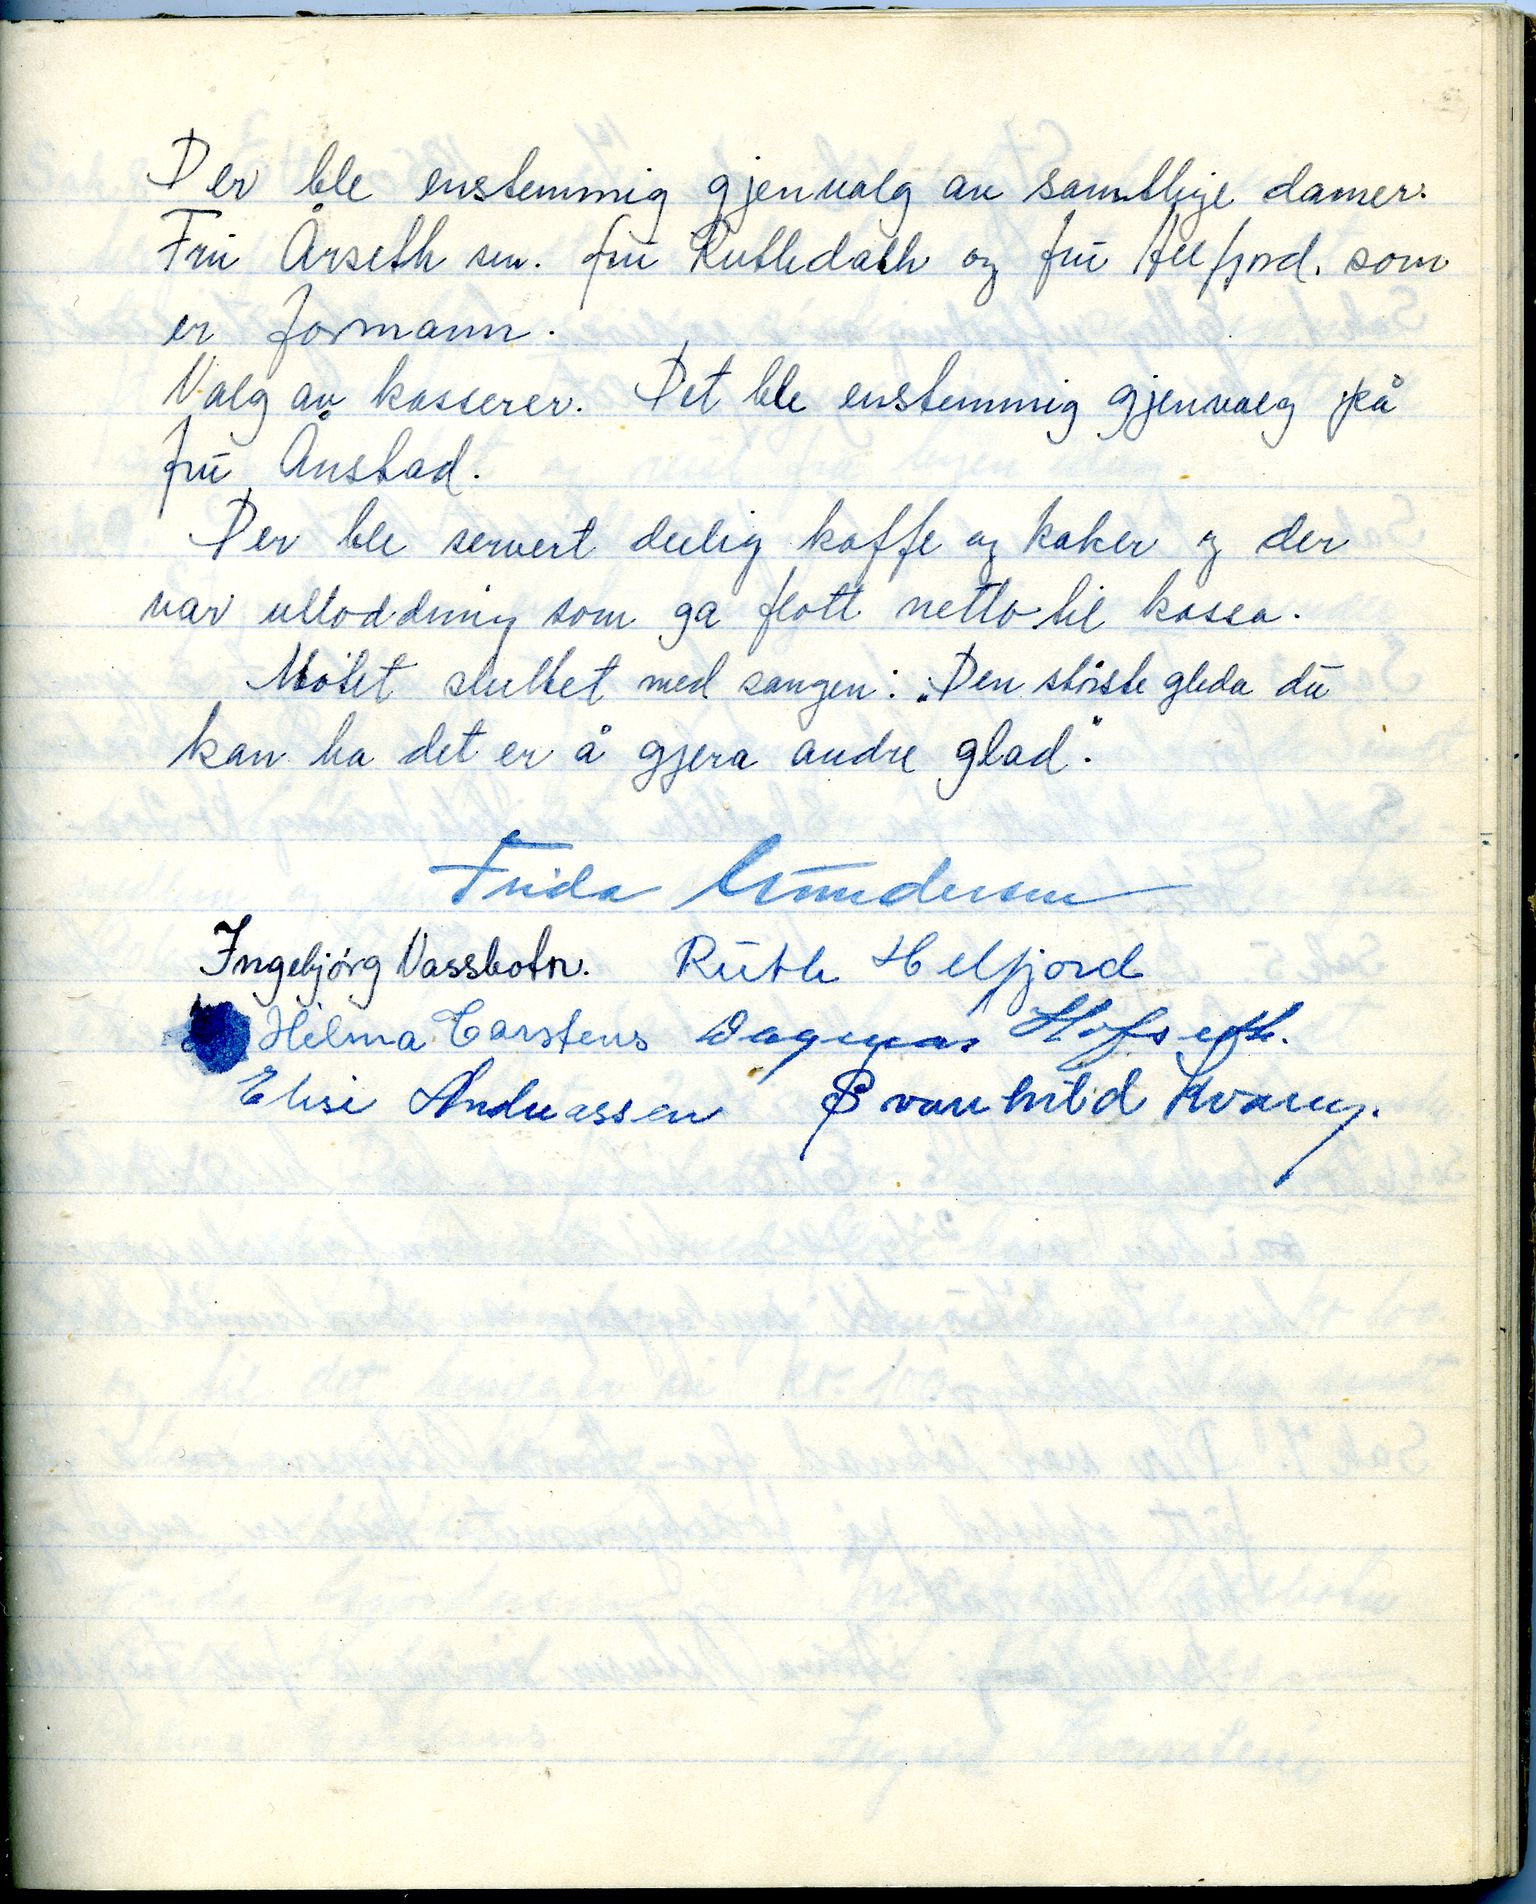 Der ble enstemmig gjenvalg av samtlige damer.
Fru Årseth sen. fru Ruthdalh og fru Helfjord, som
er formann.
Valg av kasserer. Det ble enstemmig gjenvalg på
fru Ånstad.
Der ble servert deilig kaffe og kaker og der
var utloddning som ga flott netto til kassa.
Møtet sluttet med sangen: „Den største gleda du
kan ha det er å gjera andre glad".
Frida Gundersen
Ingebjørg Vassbotn. Ruth Helfjord
Hilma Carstens Dagmar Hofseth.
Elise Andreassen Svanhild Kvang.